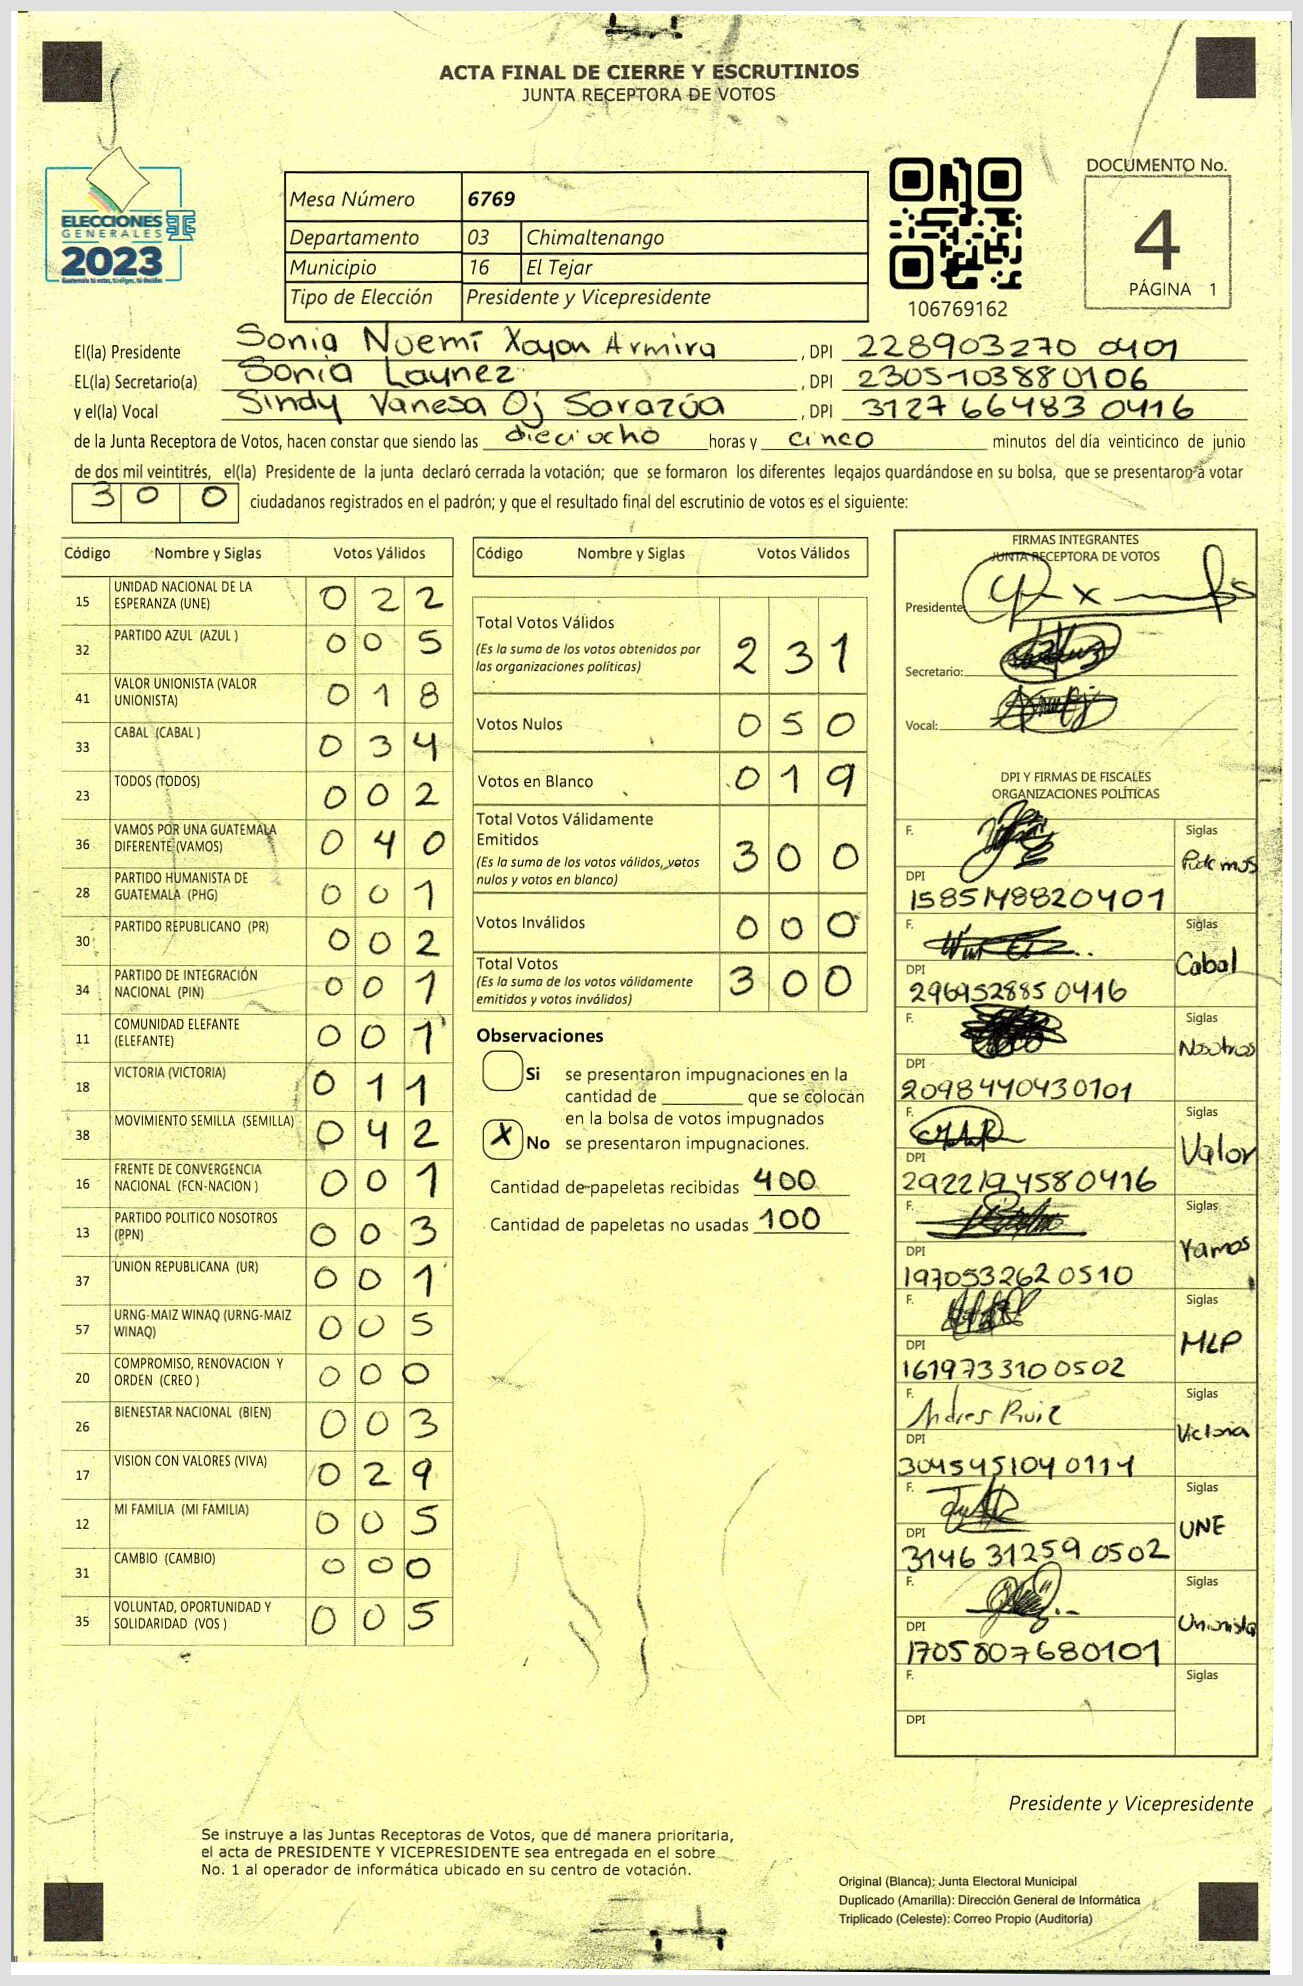 ACTA FINAL DE CIERRE Y ESCRUTINIOS
JUNTA RECEPTORA DE VOTOS
ELECCIONES
GENERALES
2023
Mesa Número 6769
Departamento 03 Chimaltenango
Municipio 16 El Tejar
Tipo de Elección Presidente y Vicepresidente
106769162
DOCUMENTO No.
4
PÁGINA 1
El(la) Presidente Sonia Noemí Xoyon Armira , DPI 228903270 0401
EL(la) Secretario(a) Sonia Laynez , DPI 2305703880106
y el(la) Vocal Sindy Vanesa Oj Sarazúa , DPI 3127 66483 0416
de la Junta Receptora de Votos, hacen constar que siendo las dieciocho horas y cinco minutos del día veinticinco de junio
de dos mil veintitrés, el(la) Presidente de la junta declaró cerrada la votación; que se formaron los diferentes legajos guardándose en su bolsa, que se presentaron a votar
300 ciudadanos registrados en el padrón; y que el resultado final del escrutinio de votos es el siguiente:
Código Nombre y Siglas Votos Válidos
15 UNIDAD NACIONAL DE LA ESPERANZA (UNE) 022
32 PARTIDO AZUL (AZUL ) 005
41 VALOR UNIONISTA (VALOR UNIONISTA) 018
33 CABAL (CABAL ) 034
23 TODOS (TODOS) 002
36 VAMOS POR UNA GUATEMALA DIFERENTE (VAMOS) 040
28 PARTIDO HUMANISTA DE GUATEMALA (PHG) 001
30 PARTIDO REPUBLICANO (PR) 002
34 PARTIDO DE INTEGRACIÓN NACIONAL (PIN) 001
11 COMUNIDAD ELEFANTE (ELEFANTE) 001
18 VICTORIA (VICTORIA) 011
38 MOVIMIENTO SEMILLA (SEMILLA) 042
16 FRENTE DE CONVERGENCIA NACIONAL (FCN-NACION ) 001
13 PARTIDO POLITICO NOSOTROS (PPN) 003
37 UNION REPUBLICANA (UR) 001
57 URNG-MAIZ WINAQ (URNG-MAIZ WINAQ) 005
20 COMPROMISO, RENOVACION Y ORDEN (CREO ) 000
26 BIENESTAR NACIONAL (BIEN) 003
17 VISION CON VALORES (VIVA) 029
12 MI FAMILIA (MI FAMILIA) 005
31 CAMBIO (CAMBIO) 000
35 VOLUNTAD, OPORTUNIDAD Y SOLIDARIDAD (VOS ) 005
Código Nombre y Siglas Votos Válidos
Total Votos Válidos 231
(Es la suma de los votos obtenidos por
las organizaciones políticas)
Votos Nulos 050
Votos en Blanco 019
Total Votos Válidamente
Emitidos 300
(Es la suma de los votos válidos, votos
nulos y votos en blanco)
Votos Inválidos 000
Total Votos 300
(Es la suma de los votos válidamente
emitidos y votos inválidos)
Observaciones
Si se presentaron impugnaciones en la
cantidad de ________ que se colocan
en la bolsa de votos impugnados
X No se presentaron impugnaciones.
Cantidad de papeletas recibidas 400
Cantidad de papeletas no usadas 100
FIRMAS INTEGRANTES
JUNTA RECEPTORA DE VOTOS
Presidente:
Secretario:
Vocal:
DPI Y FIRMAS DE FISCALES
ORGANIZACIONES POLÍTICAS
F. Siglas Podemos
DPI 1585148820401
F. Siglas Cabal
DPI 296952885 0416
F. Siglas Nosotros
DPI 2098440430101
F. Siglas Valor
DPI 2922194580416
F. Siglas Vamos
DPI 197053262 0510
F. Siglas MLP
DPI 161973310 0502
F. Andres Ruiz Siglas Victoria
DPI 304545104 0114
F. Siglas UNE
DPI 3146 31259 0502
F. Siglas Unionista
DPI 1705807680101
F. Siglas
DPI
Presidente y Vicepresidente
Se instruye a las Juntas Receptoras de Votos, que de manera prioritaria,
el acta de PRESIDENTE Y VICEPRESIDENTE sea entregada en el sobre
No. 1 al operador de informática ubicado en su centro de votación.
Original (Blanca): Junta Electoral Municipal
Duplicado (Amarilla): Dirección General de Informática
Triplicado (Celeste): Correo Propio (Auditoría)